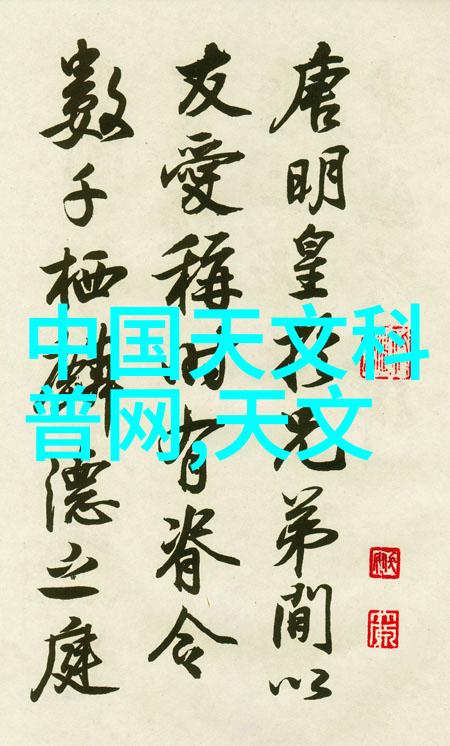 唐明皇於兄弟間以
友愛稱時有脊令
數千栖麟德之庭
中国天文科
普网,天文